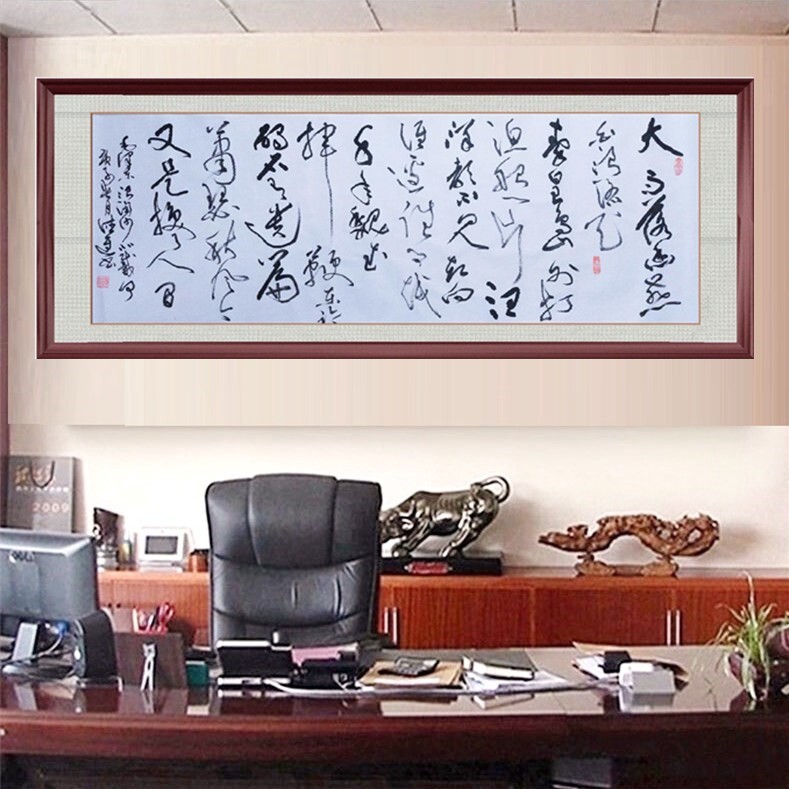 大雨落幽燕
白浪滔天
秦皇岛外打
渔船一片汪
洋都不见知向
谁边往事越
千年魏武
挥鞭东临
碣石有遗篇
萧瑟秋风今
又是换了人间
毛泽东浪淘沙北戴河
2009